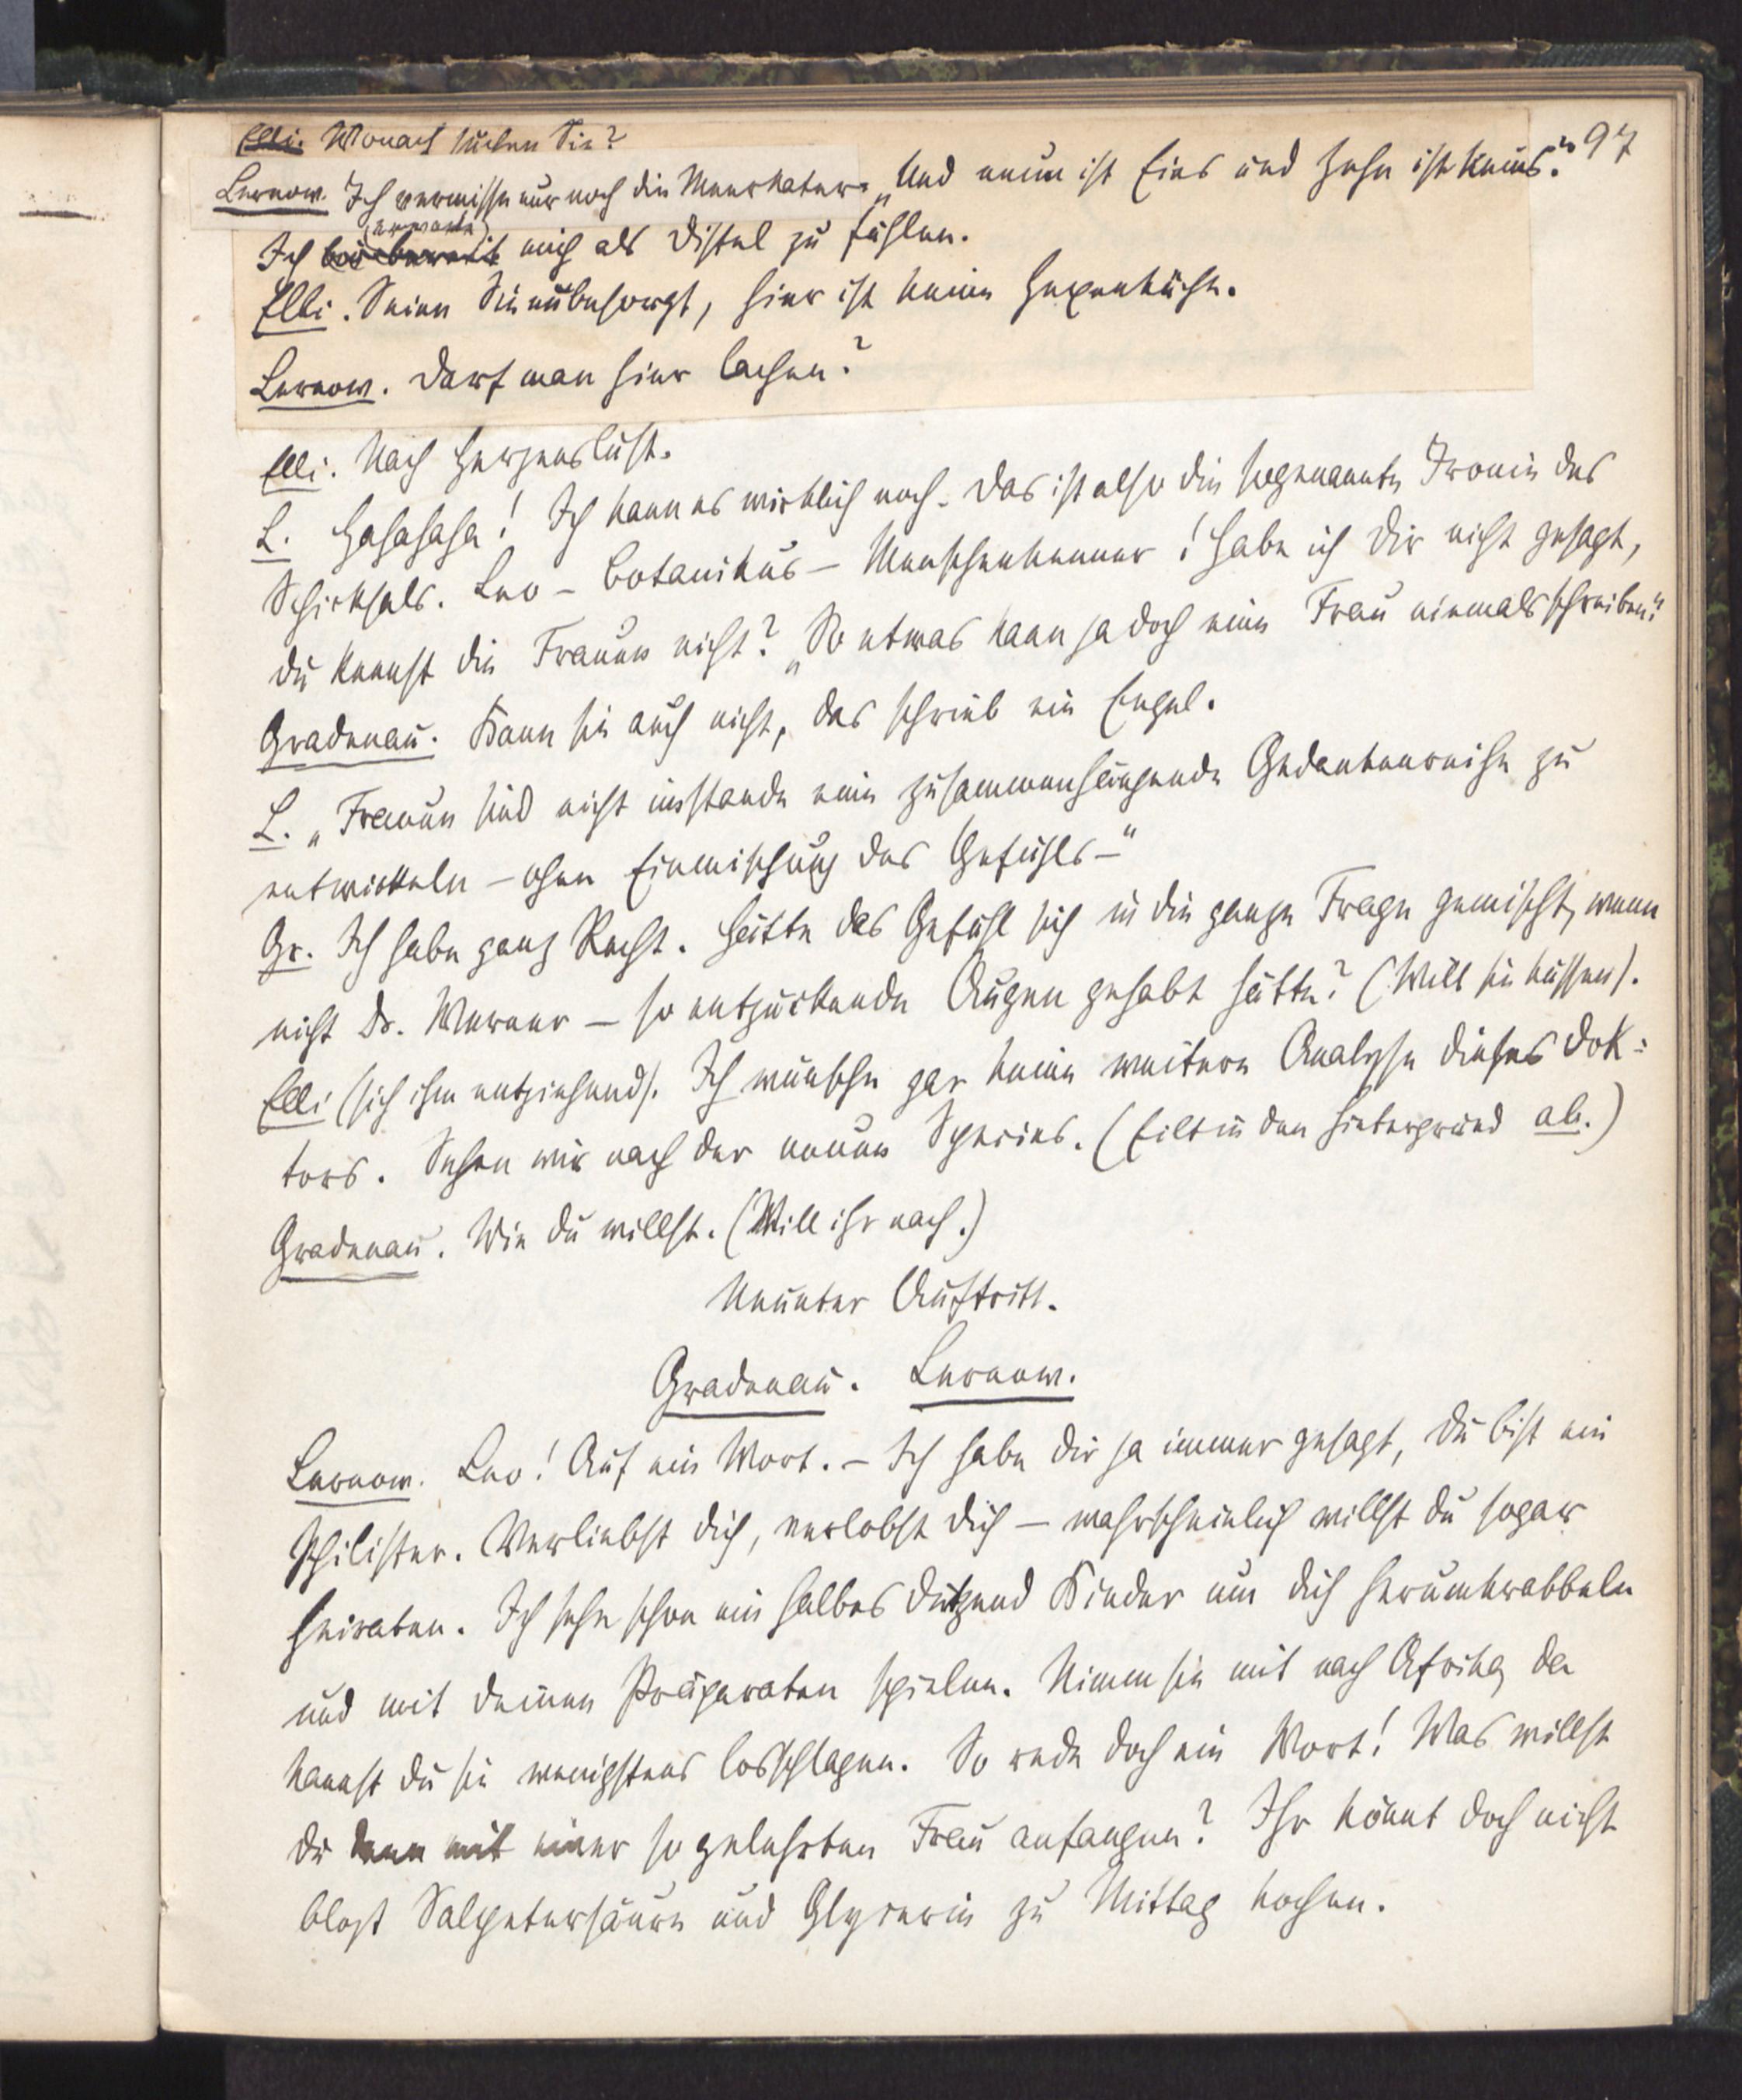 97
Elli. Wonach suchen Sie?
Lernow. Ich vermisse nur noch die Meerkater. „Und neun ist Eins und Zehn ist keins.“
Ich bin bereit (erwarte) mich als Distel zu fühlen.
Elli. Seien Sie unbesorgt, hier ist keine Hexenküche.
Lernow. Darf man hier lachen?
Elli. Nach Herzenslust.
L. Hahahaha! Ich kann es wirklich noch. Das ist also die sogenannte Ironie des
Schicksals. Leo – Botanikus – Menschenkenner! Habe ich Dir nicht gesagt,
du kennst die Frauen nicht? „So etwas kann ja doch eine Frau niemals schreiben“!
Gradenau. Kann sie auch nicht, das schrieb ein Engel.
L. „Frauen sind nicht imstande eine zusammenhängende Gedankenreihe zu
entwickeln – ohne Einmischung des Gefühls –“
Gr. Ich habe ganz Recht. Hätte das Gefühl sich in die ganze Frage gemischt, wenn
nicht Dr. Werner – so entzückende Augen gehabt hätte? (Will sie küssen).
Elli (sich ihm entziehend). Ich wünsche gar keine weitere Analyse dieses Dok-
tors. Sehen wir nach der neuen Species. (Eilt in den Hintergrund ab.)
Gradenau. Wie du willst. (Will ihr nach.)
Neunter Auftritt.
Gradenau. Lernow.
Lernow. Leo! Auf ein Wort. – Ich habe dir ja immer gesagt, Du bist ein
Philister. Verliebst dich, verlobst dich – wahrscheinlich willst du sogar
heiraten. Ich sehe schon ein halbes Dutzend Kinder um dich herumkrabbeln
und mit deinen Präparaten spielen. Nimm sie mit nach Afrika, da
kannst du sie wenigstens losschlagen. So rede doch ein Wort! Was willst
du denn mit einer so gelehrten Frau anfangen? Ihr könnt doch nicht
blost Salpetersäure und Glycerin zu Mittag kochen.